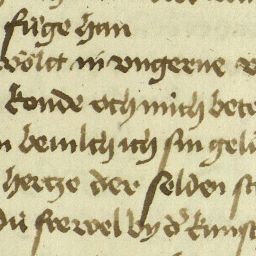 fúge han
wölt in vngerne v
konde och mich bete
n beuilch ich sin gelü
hertze der selden st
du freuel by dˢ kunst